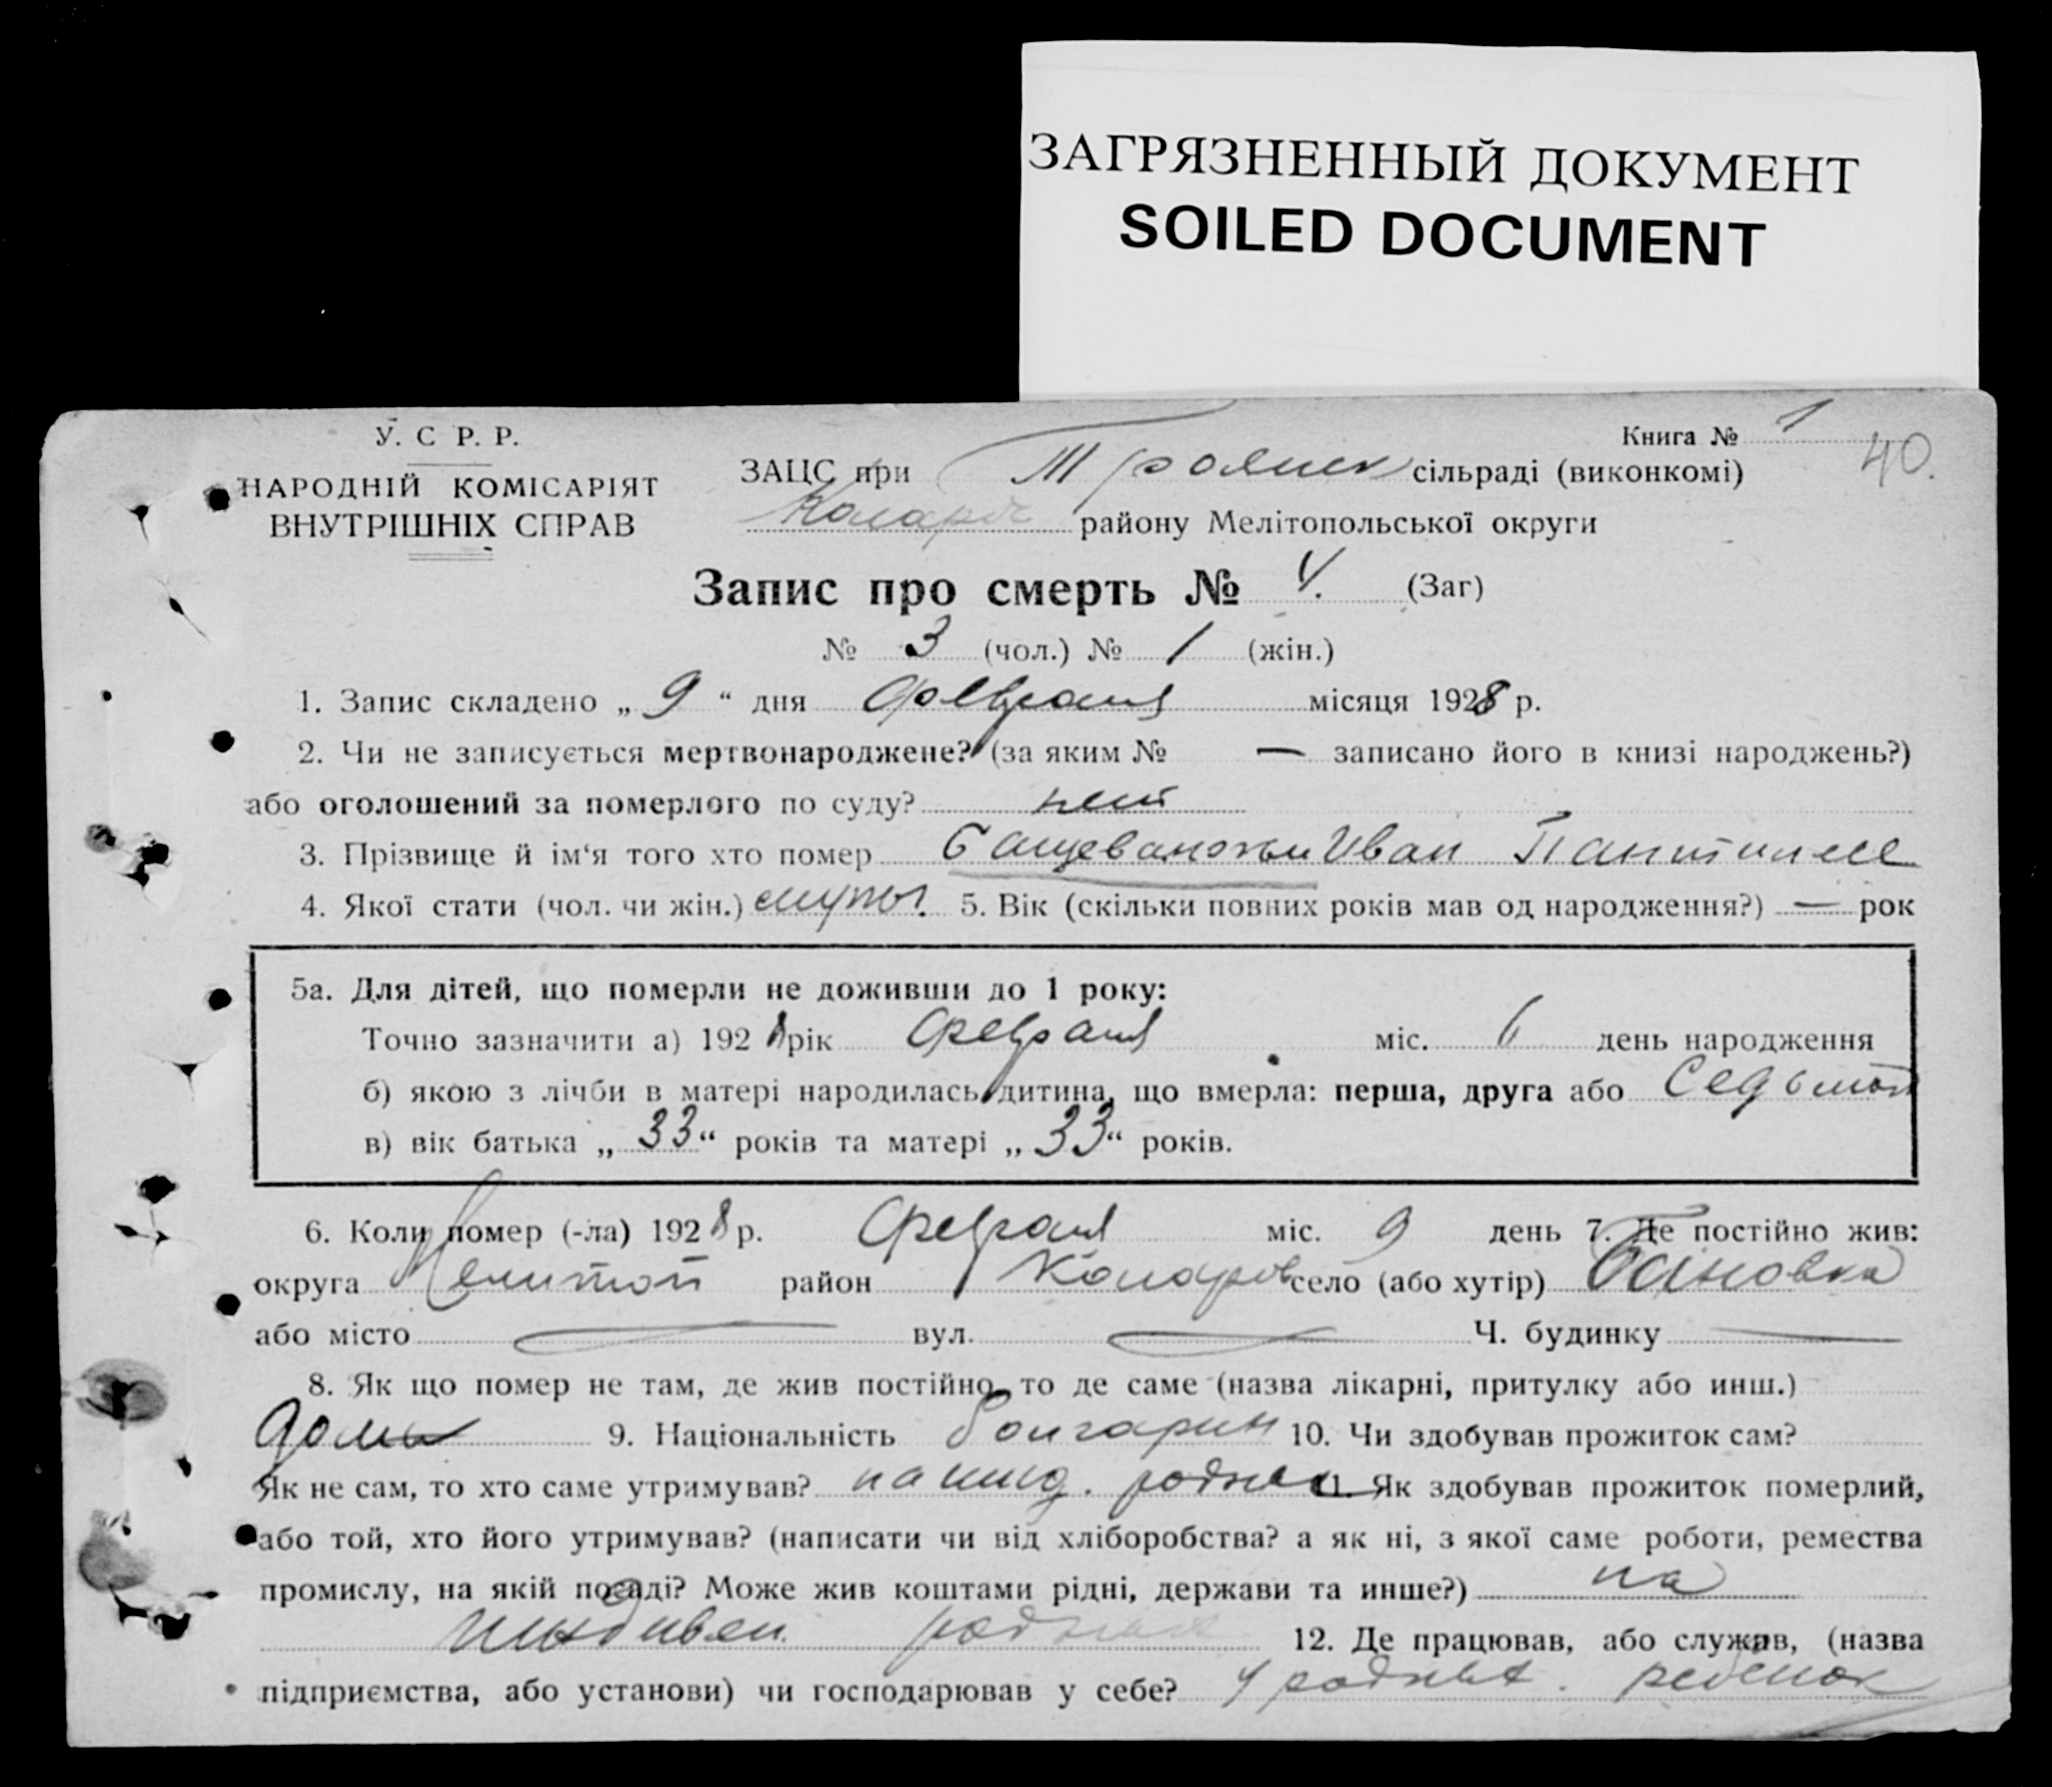 ЗАГРЯЗНЕННЫЙ ДОКУМЕНТ
SOILED DOCUMENT
У. С Р. Р.
НАРОДНІЙ КОМІСАРІЯТ
ВНУТРІШНІХ СПРАВ
Книга № 1
40.
ЗАЦС при Троянск сільраді (виконкомі)
Коларов району Мелітопольської округи
Запис про смерть № 4. (Заг)
№ 3 (чол.) № 1 (жін.)
1. Запис складено „ 9 “ дня февраля місяця 1928 р.
2. Чи не записується мертвонароджене? (за яким № — записано його в книзі народжень?)
або оголошений за померлого по суду? нет
3. Прізвище й ім‘я того хто помер Иван
4. Якої стати (чол. чи жін.) 5. Вік (скільки повних років мав од народження?) — рок
5а. Для дітей, що померли не доживши до 1 року:
Точно зазначити а) 1928 рік февраля міс. 6 день народження
б) якою з лічби в матері народилась дитина, що вмерла: перша, друга або седьмой
в) вік батька „ 33 “ років та матері „ 33 “ років.
6. Коли помер (-ла) 1928 р. февраля міс. 9 день 7. Де постійно жив:
округа Мелитоп район Коларов село (або хутір)
або місто — вул. — Ч. будинку —
8. Як що помер не там, де жив постійно, то де саме (назва лікарні, притулку або инш.)
дома 9. Національність болгарин 10. Чи здобував прожиток сам?
Як не сам, то хто саме утримував? на ижд. родных 11. Як здобував прожиток померлий,
або той, хто його утримував? (написати чи від хліборобства? а як ні, з якої саме роботи, ремества
промислу, на якій посаді? Може жив коштами рідні, держави та инше?) на
иждивен. родных 12. Де працював, або служив, (назва
підприємства, або установи) чи господарював у себе? у родных. ребенок